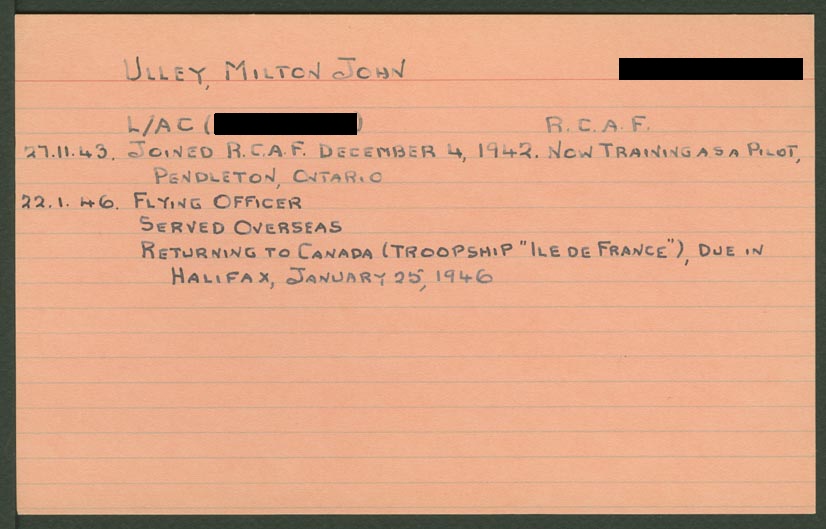 ULLEY, MILTON JOHN
L/AC ( ) R.C.A.F.
27.11.43. JOINED R.C.A.F. DECEMBER 4, 1942. NOW TRAINING AS A PILOT,
PENDLETON, ONTARIO
22.1.46. FLYING OFFICER
SERVED OVERSEAS
RETURNING TO CANADA (TROOPSHIP "ILE DE FRANCE"), DUE IN
HALIFAX, JANUARY 25, 1946